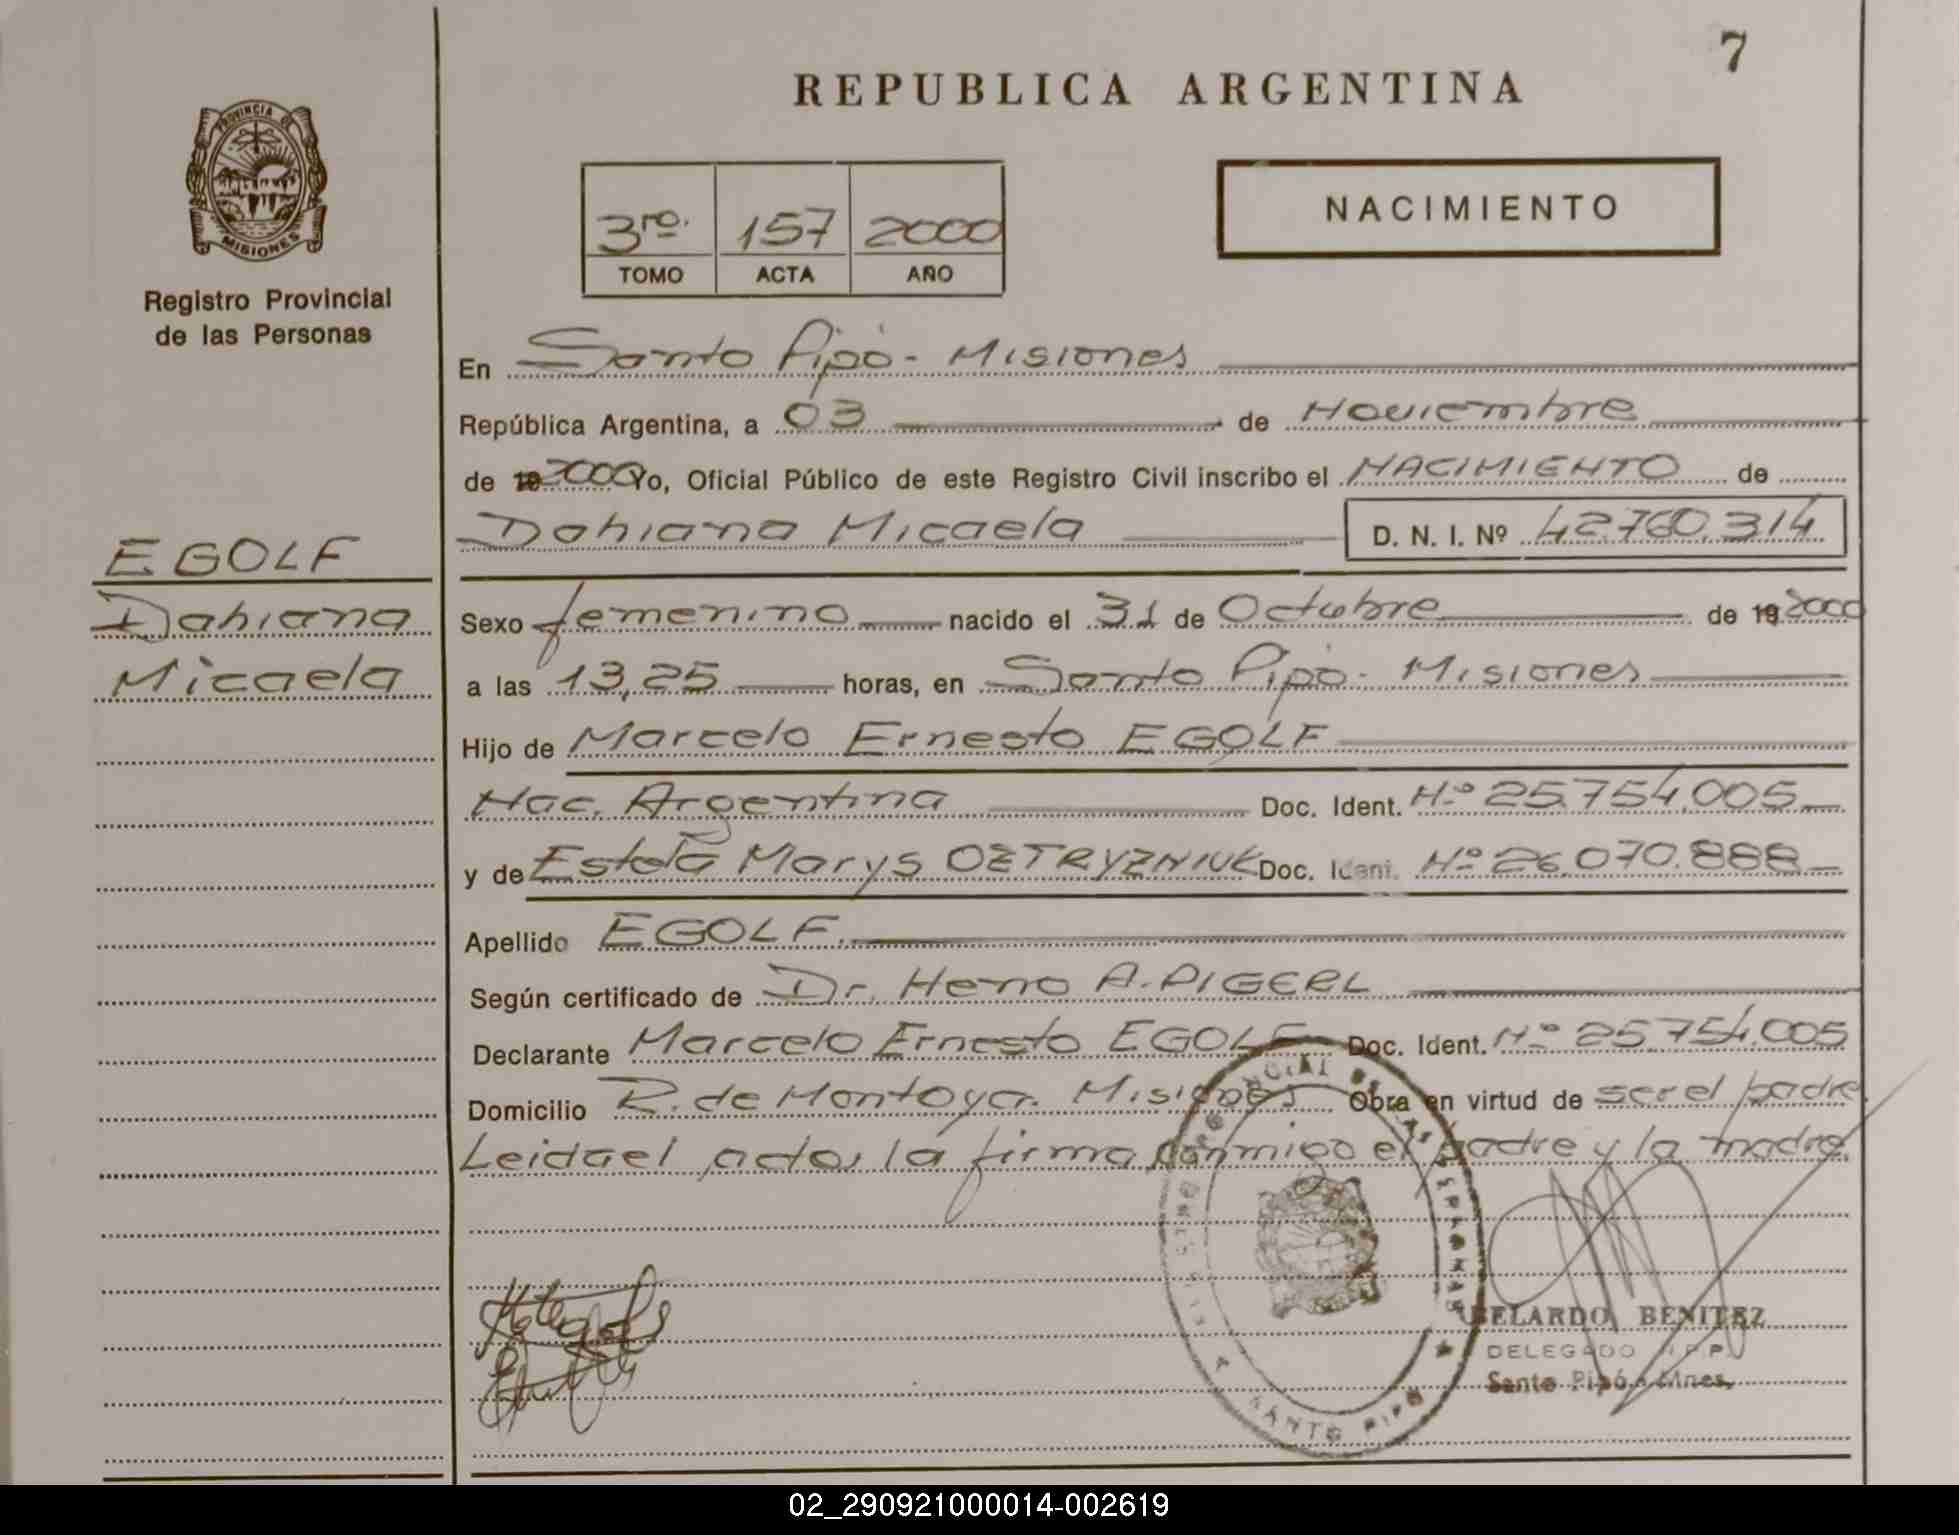 7
REPUBLICA ARGENTINA
PROVINCIA DE
MISIONES
Registro Provincial
de las Personas
NACIMIENTO
3ro. 157 2000
TOMO ACTA AÑO
En Santo Pipó - Misiones
República Argentina, a 03 de Noviembre
de 19 2000 Yo, Oficial Público de este Registro Civil inscribo el NACIMIENTO de
Dahiana Micaela D. N. I. Nº 42.760.314
EGOLF
Dahiana
Micaela
Sexo femenino nacido el 31 de Octubre de 19 2000
a las 13,25 horas, en Santo Pipó - Misiones
Hijo de Marcelo Ernesto EGOLF
Nac. Argentina Doc. Ident. Nº 25.754.005
y de Estela Marys OZTRYZNIUK Doc. Ident. Nº 26.070.888
Apellido EGOLF
Según certificado de Dr. Heno A. PIGERL
Declarante Marcelo Ernesto EGOLF Doc. Ident. Nº 25.754.005
Domicilio R. de Montoya. Misiones Obra en virtud de ser el padre
Leida el acta, la firma conmigo el padre y la madre.
REGISTRO PROVINCIAL DE LAS PERSONAS
SANTO PIPO
ABELARDO BENITEZ
DELEGADO R.P.P.
Santo Pipó - Mnes.
02_290921000014-002619